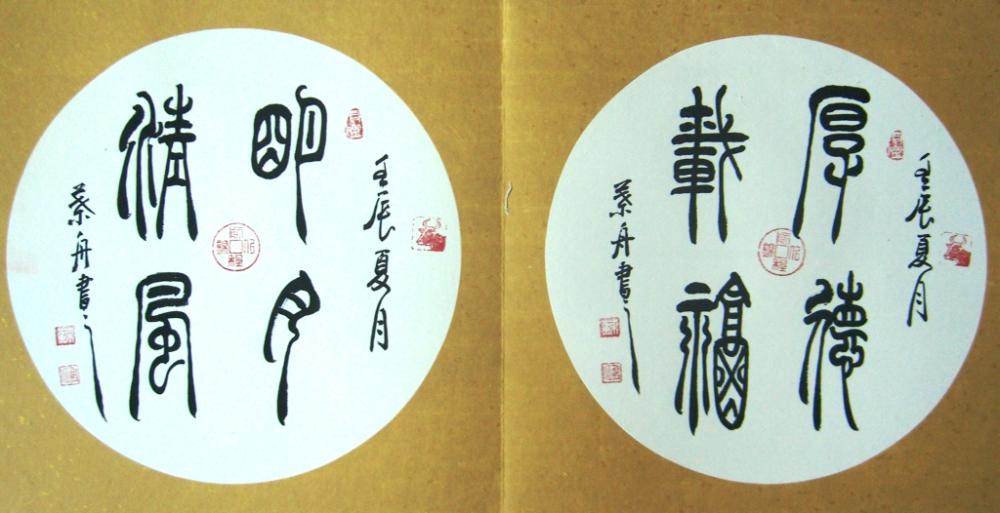 壬辰夏月
厚德
載福
蔡舟書之
壬辰夏月
明月
清風
蔡舟書之